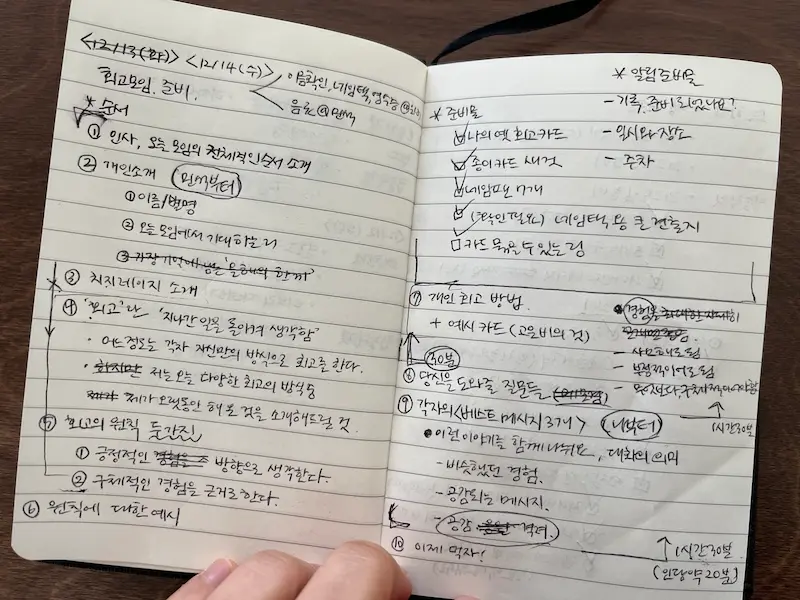 <12/13(화)> <12/14(수)>
이름확인, 네임텍, 영수증
회고모임. 준비.
음료@민석
* 순서
① 인사, 오늘 모임의 전체적인 순서 소개
② 개인소개 민석부터
① 이름/별명
② 오늘 모임에서 기대하는 것
③ 가장 기억에 남는 '올해의 한끼'
③ 치치레이지 소개
④ '회고'란 '지나간 일을 돌이켜 생각함'
• 어느정도는 각자 자신만의 방식으로 회고를 한다.
• 하지만 저는 오늘 다양한 회고의 방식 중
제가 제가 오랫동안 해본 것을 소개해드릴 것.
⑤ 회고의 원칙 두가지
① 긍정적인 경험을 방향으로 생각한다.
② 구체적인 경험을 근거로 한다.
⑥ 원칙에 대한 예시
* 알림준비물
- 기록, 준비 되었나요?
- 일시와 장소
- 주차
* 준비물
나의 옛 회고카드
종이 카드 새것
네임펜 7개
(확인필요) 네임텍용 큰 견출지
카드 묶을 수 있는 링
⑦ 개인 회고 방법.
+ 예시 카드 (고은비의 것)
• 경험을 최대한 자세히
- 사소해도 됨
- 부정적이어도 됨
30분
⑧ 당신을 도와줄 질문들
1시간 30분
⑨ 각자의 <베스트 메시지 3개> 나부터
• 이런 이야기를 함께 나눠요, 대화의 의미
- 비슷했던 경험.
- 공감되는 메시지.
- 공감 격려.
⑩ 이제 먹자!
1시간 30분.
(인당 약 20분)